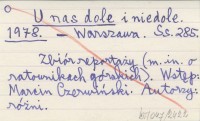 U nas dole i niedole.
1978. – Warszawa. Ss. 285.
Zbiór reportaży (m.in. o
ratownikach górskich). Wstęp:
Marcin Czerwiński. Autorzy:
różni.